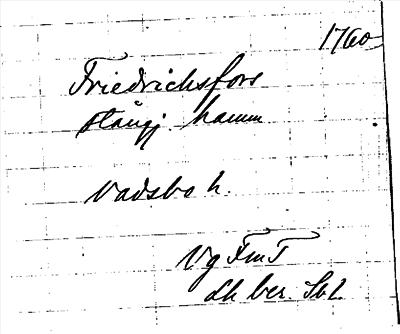 1760
Friedrichsfors
stångj hamm
Vadsbo h.
Vg FmT
dh ber. Sbl.